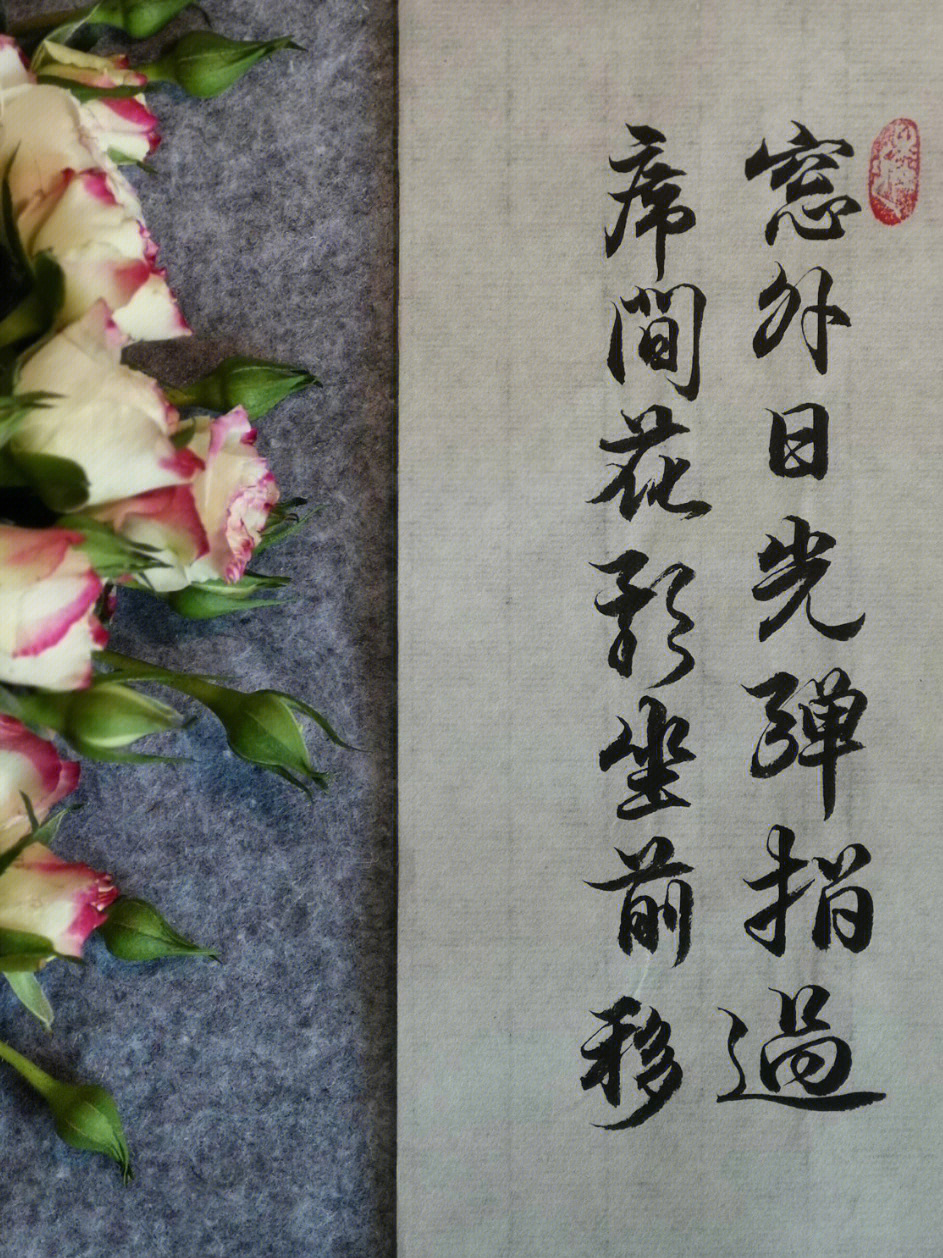 窓外日光彈指過
席間花影坐前移